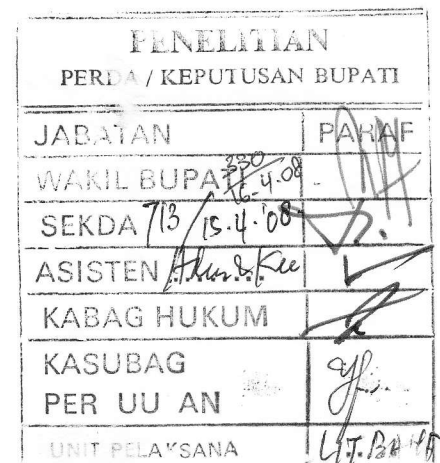 PENELITIAN
PERDA / KEPUTUSAN BUPATI
JABATAN PARAF
WAKIL BUPATI 330 16-4-08
SEKDA 713 15-4-'08
ASISTEN
KABAG HUKUM
KASUBAG
PER UU AN
UNIT PELAKSANA